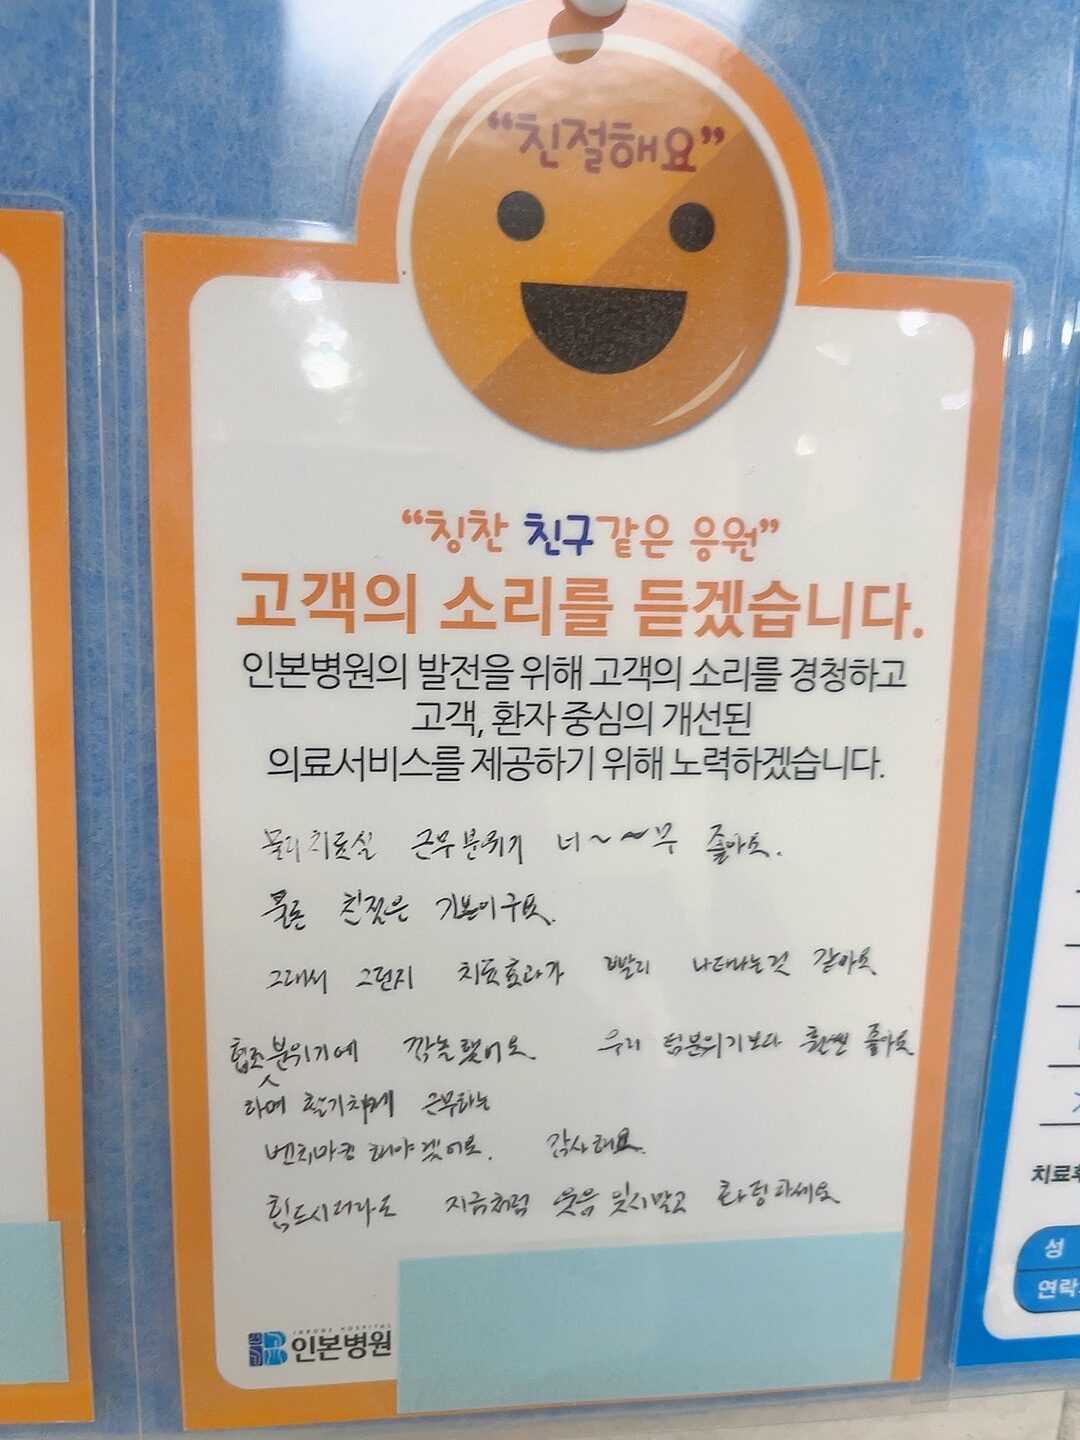 "친절해요"
"칭찬 친구같은 응원"
고객의 소리를 듣겠습니다.
인본병원의 발전을 위해 고객의 소리를 경청하고
고객, 환자 중심의 개선된
의료서비스를 제공하기 위해 노력하겠습니다.
물리치료실 근무분위기 너~~무 좋아요.
물론 친절은 기본이구요.
그래서 그런지 치료효과가 빨리 나타나는것 같아요
협조분위기에 깍놀랬어요. 우리 팀분위기보다 훨씬 좋아요
하여 활기차게 근무하는
벤치마킹 해야겠어요. 감사해요.
힘드시더라도 지금처럼 웃음 잊지말고 화팅하세요
INBONE HOSPITAL
인본병원
치료
성
연락